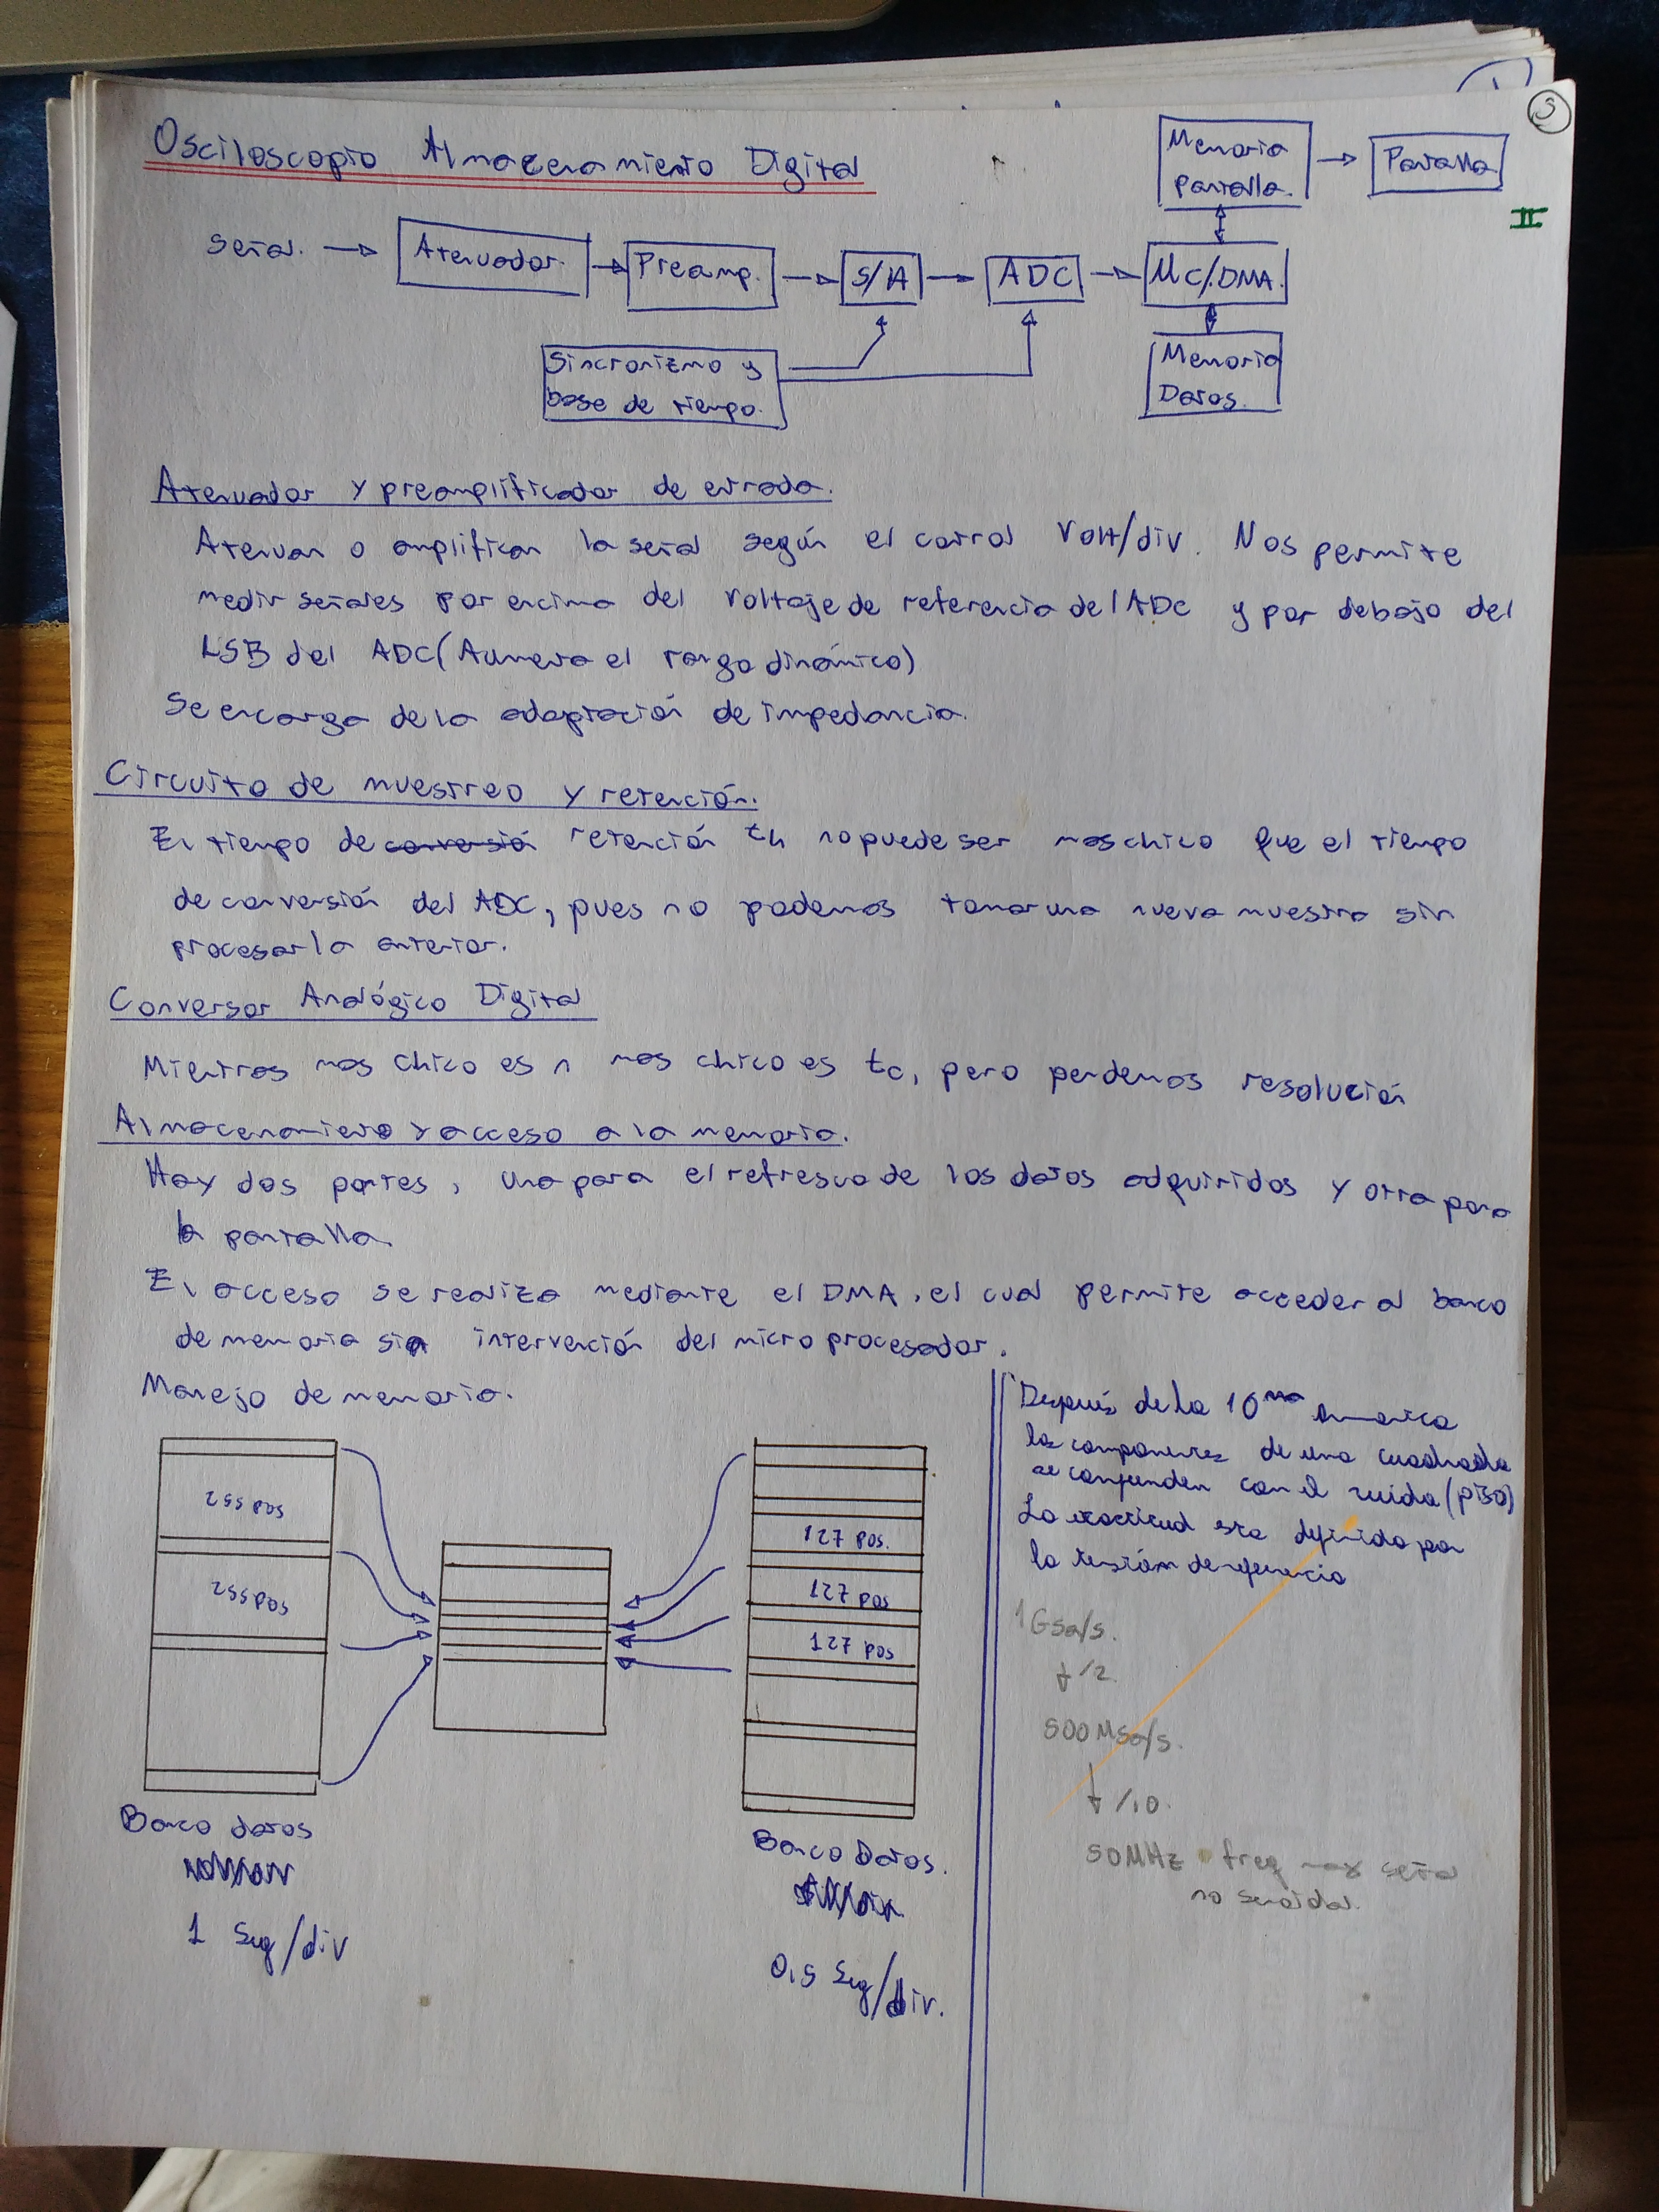 3
Osciloscopio Almacenamiento Digital
Memoria
Pantalla.
Pantalla
II
señal.
Atenuador.
Preamp.
S/H
ADC
µC/DMA.
Sincronizmo y
base de tiempo.
Memoria
Datos.
Atenuador y preamplificador de entrada.
Atenuan o amplifican la señal según el control Volt/div. Nos permite
medir señales por encima del voltaje de referencia del ADC y por debajo del
LSB del ADC (Aumenta el rango dinámico)
Se encarga de la adaptación de impedancia.
Circuito de muestreo y retención.
El tiempo de conversión retención th no puede ser mas chico que el tiempo
de conversión del ADC, pues no podemos tomar una nueva muestra sin
procesar la anterior.
Conversor Analógico Digital
Mientras mas chico es n mas chico es tc, pero perdemos resolución
Almacenamiento y acceso a la memoria.
Hay dos partes, una para el refresco de los datos adquiridos y otra para
la pantalla.
El acceso se realiza mediante el DMA, el cual permite acceder al banco
de memoria sin intervención del microprocesador.
Manejo de memoria.
255 pos
255 pos
127 pos.
127 pos
127 pos
Banco datos
1 Seg/div
Banco Datos.
0,5 Seg/div.
Después de la 10ma armonica
las componentes de una cuadrada
se confunden con el ruido (piso)
La exactitud esta definida por
la tensión de referencia
1GSa/s.
/2
500MSa/s.
/10.
50MHz freq max señal
no senoidal.